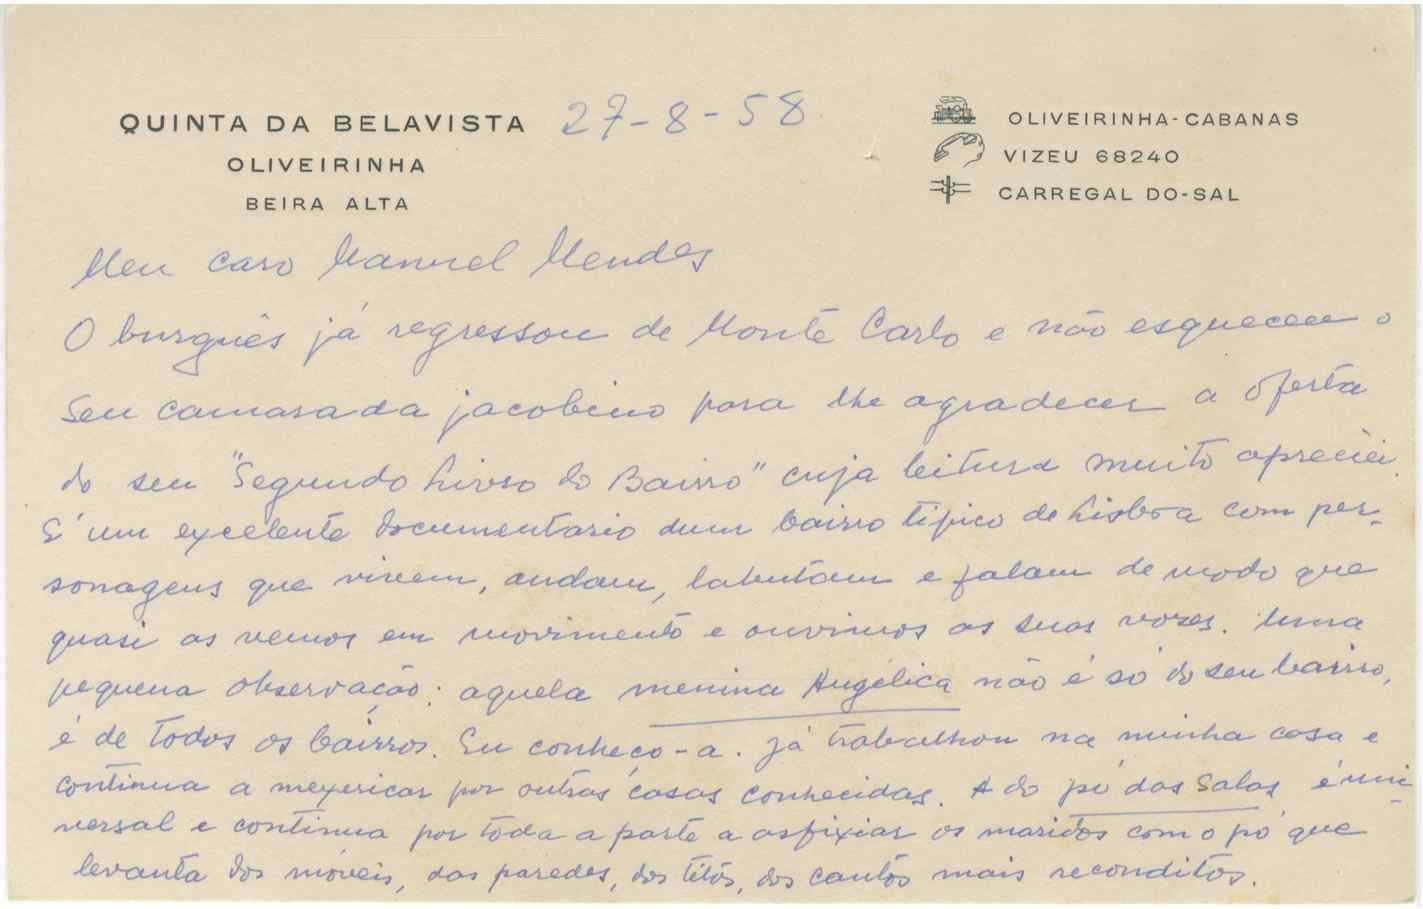 QUINTA DA BELAVISTA 27-8-58
OLIVEIRINHA
BEIRA ALTA
OLIVEIRINHA-CABANAS
VIZEU 68240
CARREGAL DO-SAL
Meu caro Manuel Mendes
O burguês já regressou de Monte Carlo e não esqueceu o
seu camarada jacobino para lhe agradecer a oferta
do seu "Segundo Livro do Bairro" cuja leitura muito apreciei.
É um excelente documentario dum bairro tipico de Lisboa com per-
sonagens que vivem, andam, labutam e falam de modo que
quasi as vemos em movimento e ouvimos as suas vozes. Uma
pequena observação: aquela menina Angélica não é só do seu bairro,
é de todos os bairros. Eu conheço-a. Já trabalhou na minha casa e
continua a mexericar por outras casas conhecidas. A do pó das Salas é uni-
versal e continua por toda a parte a asfixiar os maridos com o pó que
levanta dos móveis, das paredes, dos tétos, dos cantos mais reconditos.